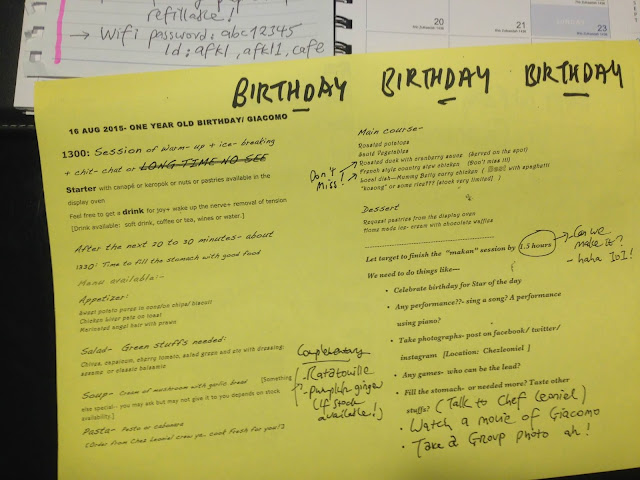 refillable!
→ Wifi password: abc12345
Id: afkl, afkl1, cafe
20
21
22
23
BIRTHDAY BIRTHDAY BIRTHDAY
16 AUG 2015- ONE YEAR OLD BIRTHDAY/ GIACOMO
1300: Session of warm- up + ice- breaking
+ chit- chat or LONG TIME NO SEE
Starter with canapé or keropok or nuts or pastries available in the
display oven
Feel free to get a drink for joy+ wake up the nerve+ removal of tension
[Drink available: soft drink, coffee or tea, wines or water.]
After the next 20 to 30 minutes- about
1330! Time to fill the stomach with good food
Menu available:-
Appetizer!
Sweet potato puree in wonton chips/ biscuit
Chicken liver pate on toast
Marinated angel hair with prawn
Salad- Green stuffs needed:
Citrus, capsicum, cherry tomato, salad green and etc with dressing:
sesame or classic balsamic
Soup- Cream of mushroom with garlic bread [Something
else special- you may ask but may not give it to you depends on stock
availability.]
Pasta- Pesto or cabonara
(Order from Chez Leoniel crew ya- cook fresh for you!)
Complementary
- Ratatouille
- pumpkin ginger
(If stock
available!)
Main course-
Roasted potatoes
Sauté Vegetables
Roasted duck with cranberry sauce (Served on the spot)
French style country stew chicken (Don't miss it)
Local dish- Mommy Betty curry chicken ( ) with spaghetti
"kosong" or some rice??? [stock very limited]
Don't
Miss!
Dessert
Request pastries from the display oven
Home made ice- cream with chocolate waffles
Let target to finish the "makan" session by 1.5 hours
- Can we
make it?
- haha lol!
We need to do things like—
• Celebrate birthday for Star of the day
• Any performance??- sing a song? A performance
using piano?
• Take photographs- post on facebook/ twitter/
instagram [Location: Chezleoniel ]
• Any games- who can be the lead?
• Fill the stomach- or needed more? Taste other
stuffs? (Talk to Chef Leoniel)
• Watch a movie of Giacomo
• Take a Group photo ah!